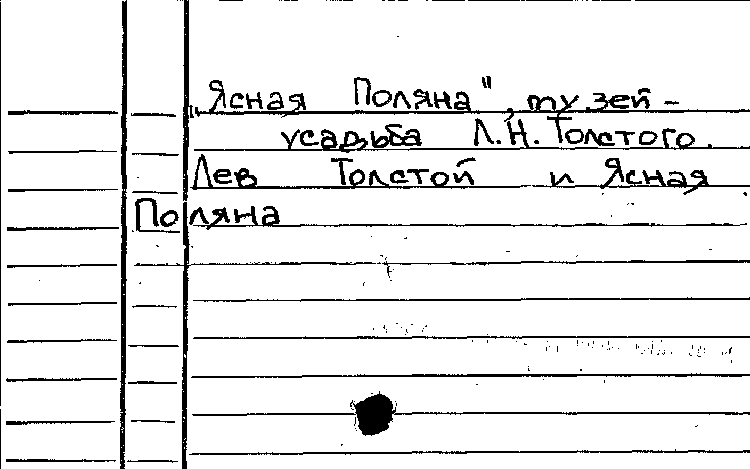 „Ясная Поляна", музей-
усадьба Л.Н. Толстого.
Лев Толстой и Ясная
Поляна